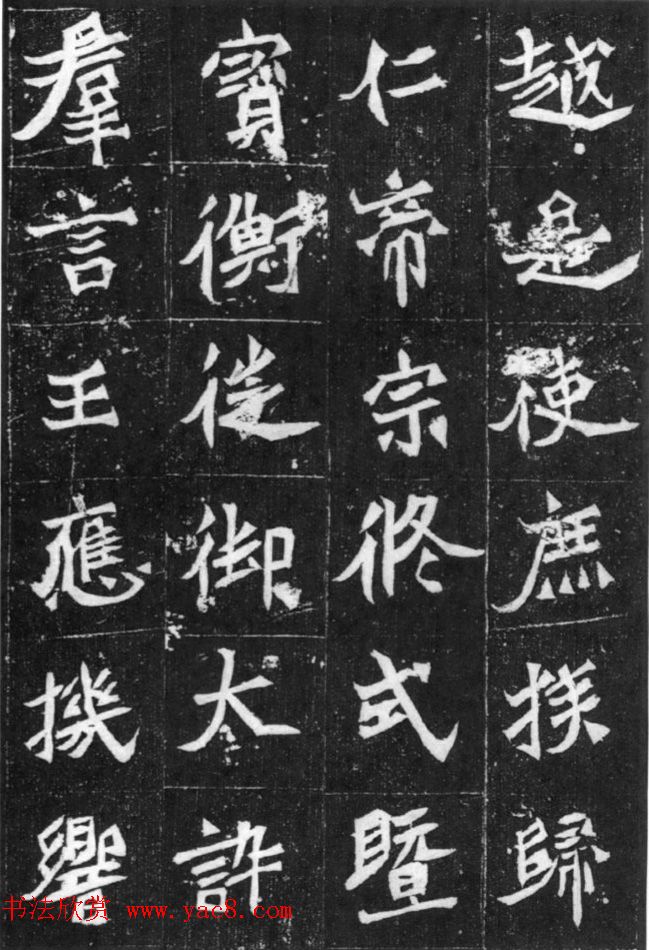 越是使庶族歸
仁帝宗攸式暨
寶衡徙御太許
羣言王應機響
书法欣赏 www.yac8.com